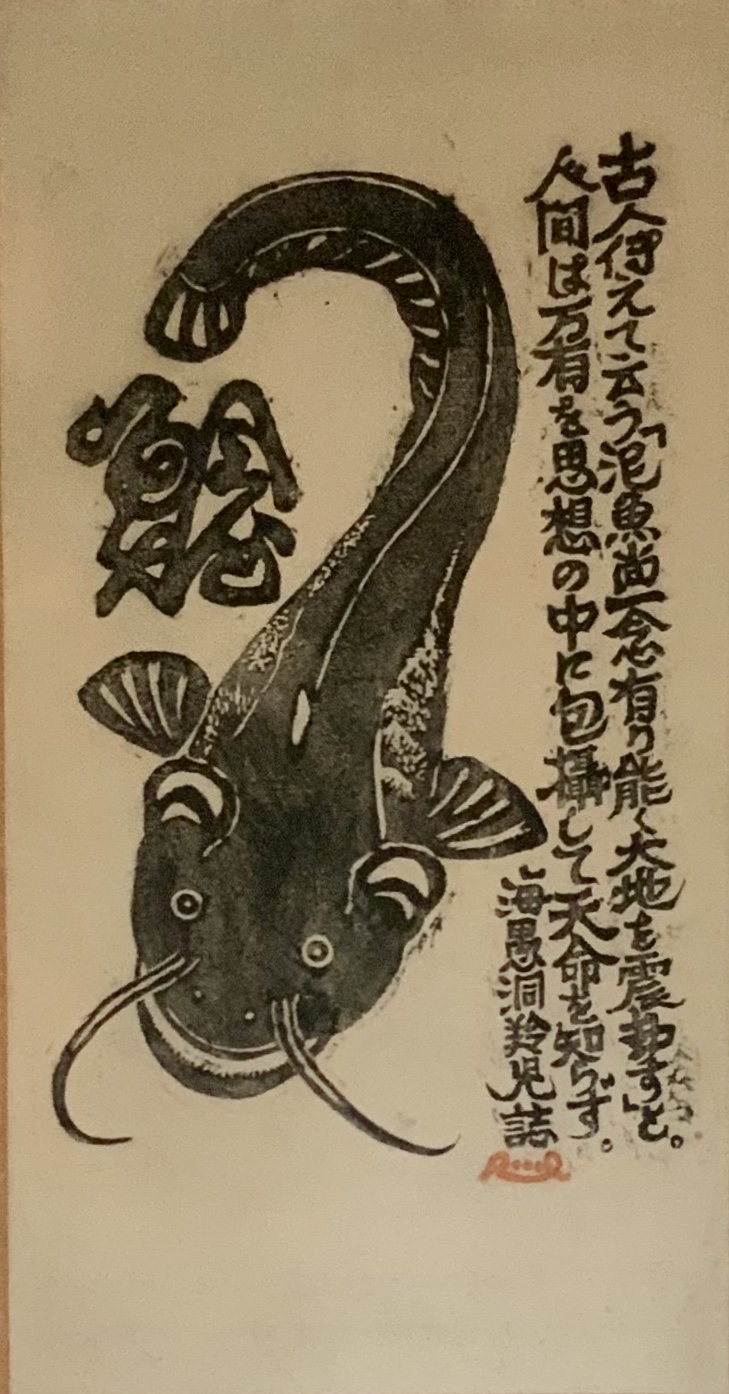 古人傳えて云う「泥魚尚一念有り能く大地を震動す」と。
人間は万有を思想の中に包攝して天命を知らず。
海愚洞羚児誌
鯰